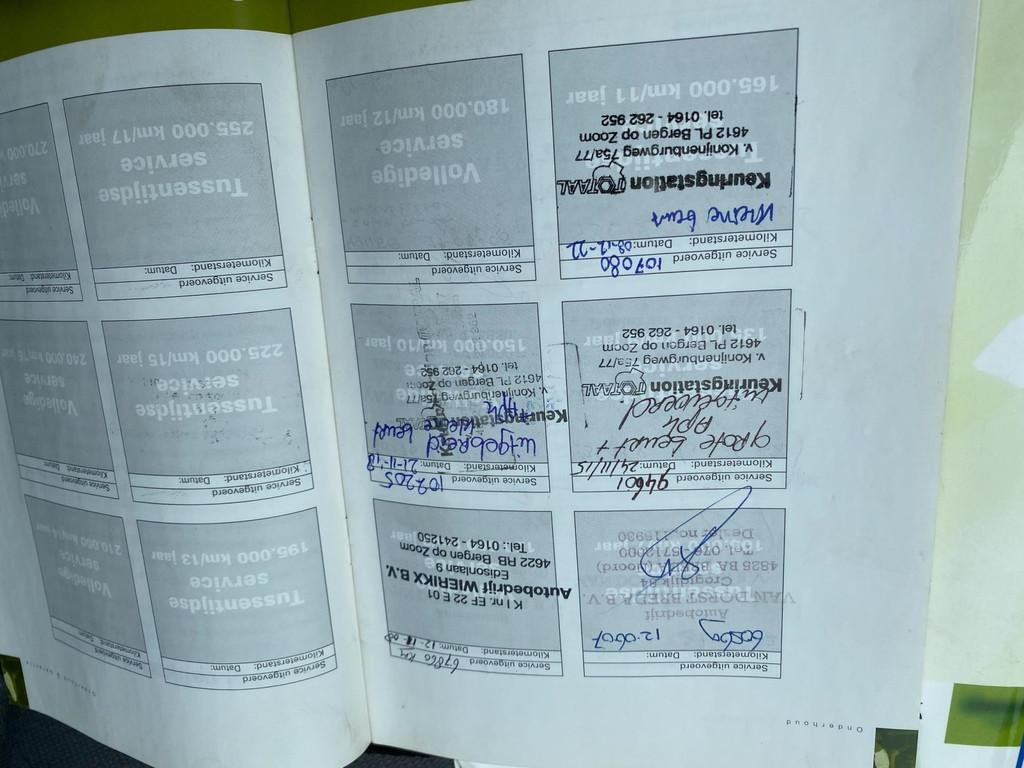 Onderhoud
Service uitgevoerd
Kilometerstand: Datum:
12-0607
Autobedrijf
VAN DORST BREDA B.V.
4825 BA BREDA (Noord)
Tel. 076-5713000
Service uitgevoerd
67860 km
Kilometerstand: Datum:
K I nr. EF 22 E 01
Autobedrijf WIERIKX B.V.
Edisonlaan 9
4622 RB Bergen op Zoom
Tel.: 0164 - 241250
Service uitgevoerd
94601
Kilometerstand: Datum: 24/11/15
grote beurt +
APK
uitgevoerd
Keuringstation TOTAAL
v. Konijnenburgweg 75a/77
4612 PL Bergen op Zoom
tel. 0164 - 262 952
Service uitgevoerd
107205
Kilometerstand: Datum: 21-11-18
kleine beurt
APK
Keuringstation
v. Konijnenburgweg 75a/77
4612 PL Bergen op Zoom
tel. 0164 - 262 952
150.000 km/10 jaar
Service uitgevoerd
107080
Kilometerstand: Datum: 08-12-22
kleine beurt
Keuringstation TOTAAL
v. Konijnenburgweg 75a/77
4612 PL Bergen op Zoom
tel. 0164 - 262 952
165.000 km/11 jaar
Service uitgevoerd
Kilometerstand: Datum:
Volledige
service
180.000 km/12 jaar
Service uitgevoerd
Kilometerstand: Datum:
Tussentijdse
service
195.000 km/13 jaar
Service uitgevoerd
Kilometerstand: Datum:
Volledige
service
210.000 km/14 jaar
Service uitgevoerd
Kilometerstand: Datum:
Tussentijdse
service
225.000 km/15 jaar
Service uitgevoerd
Kilometerstand: Datum:
Volledige
service
240.000 km/16 jaar
Service uitgevoerd
Kilometerstand: Datum:
Tussentijdse
service
255.000 km/17 jaar
Service uitgevoerd
Kilometerstand: Datum:
Volledige
270.000